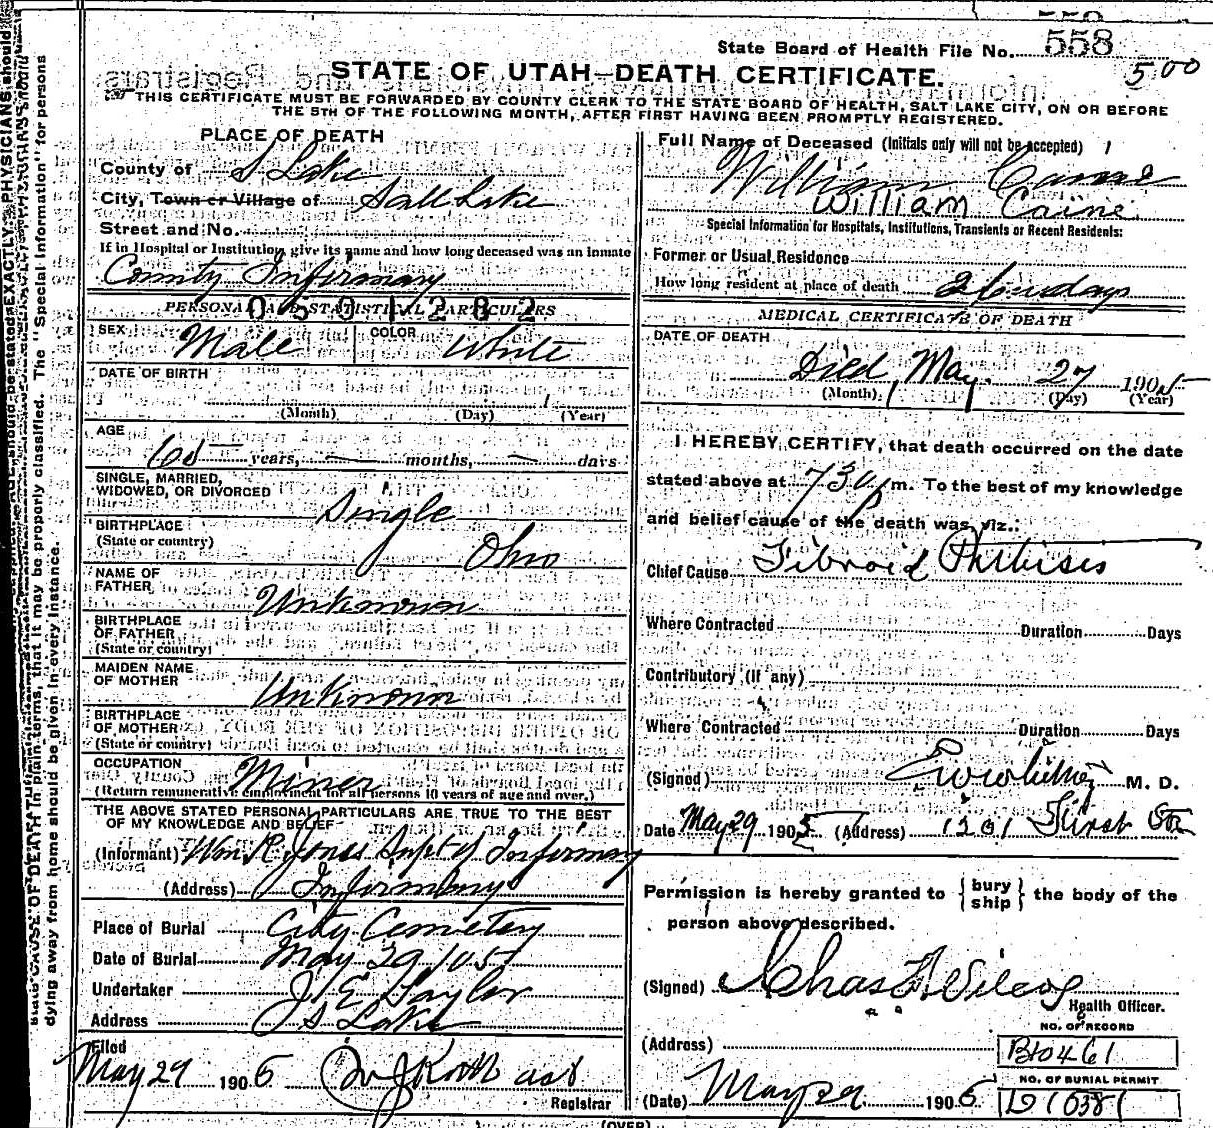 State Board of Health File No. 558
5 00
STATE OF UTAH—DEATH CERTIFICATE.
THIS CERTIFICATE MUST BE FORWARDED BY COUNTY CLERK TO THE STATE BOARD OF HEALTH, SALT LAKE CITY, ON OR BEFORE
THE 5TH OF THE FOLLOWING MONTH, AFTER FIRST HAVING BEEN PROMPTLY REGISTERED.
PLACE OF DEATH
County of S Lake
City, Town or Village of Salt Lake
Street and No.
If in Hospital or Institution, give its name and how long deceased was an inmate
County Infirmary
PERSONAL AND STATISTICAL PARTICULARS
0501282
SEX Male COLOR White
DATE OF BIRTH
(Month) (Day) (Year)
AGE
years, months, days
SINGLE, MARRIED,
WIDOWED, OR DIVORCED Single
BIRTHPLACE
(State or country) Ohio
NAME OF
FATHER Unknown
BIRTHPLACE
OF FATHER
(State or country)
MAIDEN NAME
OF MOTHER Unknown
BIRTHPLACE
OF MOTHER
(State or country)
OCCUPATION Miner
(Return remunerative employment for all persons 10 years of age and over.)
THE ABOVE STATED PERSONAL PARTICULARS ARE TRUE TO THE BEST
OF MY KNOWLEDGE AND BELIEF
(Informant) Wm R Jones Supt of Infirmary
(Address) Infirmary
Place of Burial City Cemetery
Date of Burial May 29 / 05
Undertaker J E Taylor
Address S Lake
Filed
May 29 190
Registrar
Full Name of Deceased (Initials only will not be accepted)
William Caine
William Caine
Special Information for Hospitals, Institutions, Transients or Recent Residents:
Former or Usual Residence
How long resident at place of death days
MEDICAL CERTIFICATE OF DEATH
DATE OF DEATH
Died May 27 1905
(Month) (Day) (Year)
I HEREBY CERTIFY, that death occurred on the date
stated above at 730 p m. To the best of my knowledge
and belief cause of the death was, viz.:
Chief Cause Fibroid Phthisis
Where Contracted Duration Days
Contributory (if any)
Where Contracted Duration Days
(Signed) M. D.
Date May 29 1905 (Address) 1201 First
Permission is hereby granted to { bury ship } the body of the
person above described.
(Signed) Chas F Wilcox
Health Officer.
(Address)
NO. OF RECORD
B10461
NO. OF BURIAL PERMIT
(Date) May 29 190
(OVER)
dying away from home should be given in every instance.
state CAUSE OF DEATH in plain terms, that it may be properly classified. The "Special Information" for persons